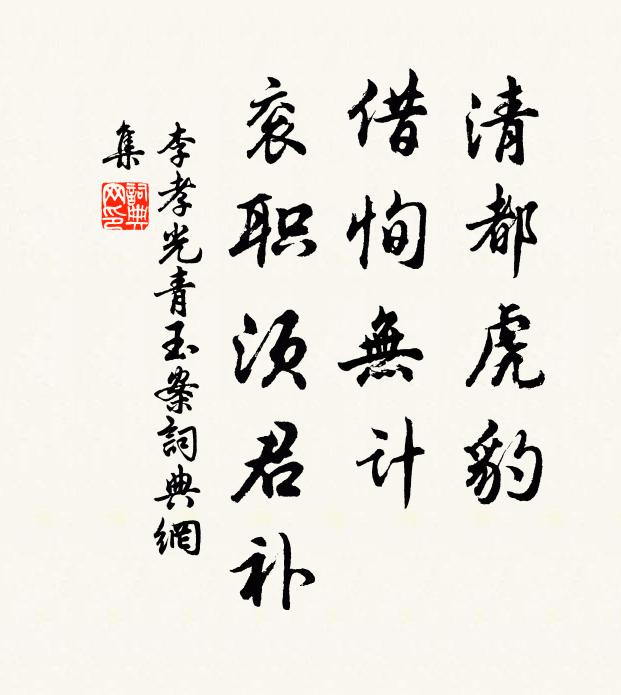 清都虎豹
借恂無计
衮职须君补
李孝光青玉案詞典網
集
詞典
网印